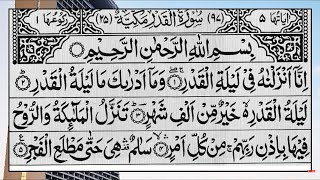 اٰیَاتُهَا ۵ (۹۷) سُوْرَةُ الْقَدْرِ مَكِّيَّةٌ (۲۵) رُكُوْعُهَا ۱
بِسْمِ اللّٰهِ الرَّحْمٰنِ الرَّحِيْمِ
اِنَّاۤ اَنْزَلْنٰهُ فِيْ لَيْلَةِ الْقَدْرِ ۝۱ وَمَاۤ اَدْرٰىكَ مَا لَيْلَةُ الْقَدْرِ ۝۲
لَيْلَةُ الْقَدْرِ ۙ خَيْرٌ مِّنْ اَلْفِ شَهْرٍ ۝۳ تَنَزَّلُ الْمَلٰٓئِكَةُ وَالرُّوْحُ
فِيْهَا بِاِذْنِ رَبِّهِمْ ۚ مِنْ كُلِّ اَمْرٍ ۝۴ سَلٰمٌ ۛ هِيَ حَتّٰى مَطْلَعِ الْفَجْرِ ۝۵